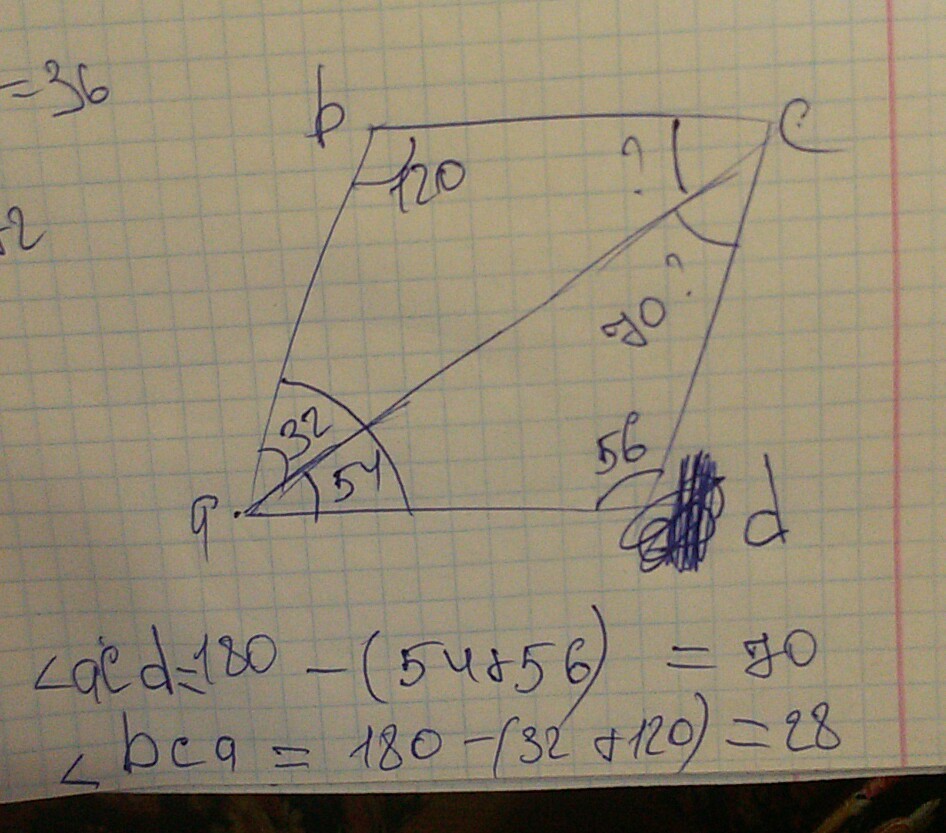 =36
b
c
120
?
+2
?
70
32
54
56
a
d
<acd=180 - (54+56) = 70
<bca = 180-(32+120)=28